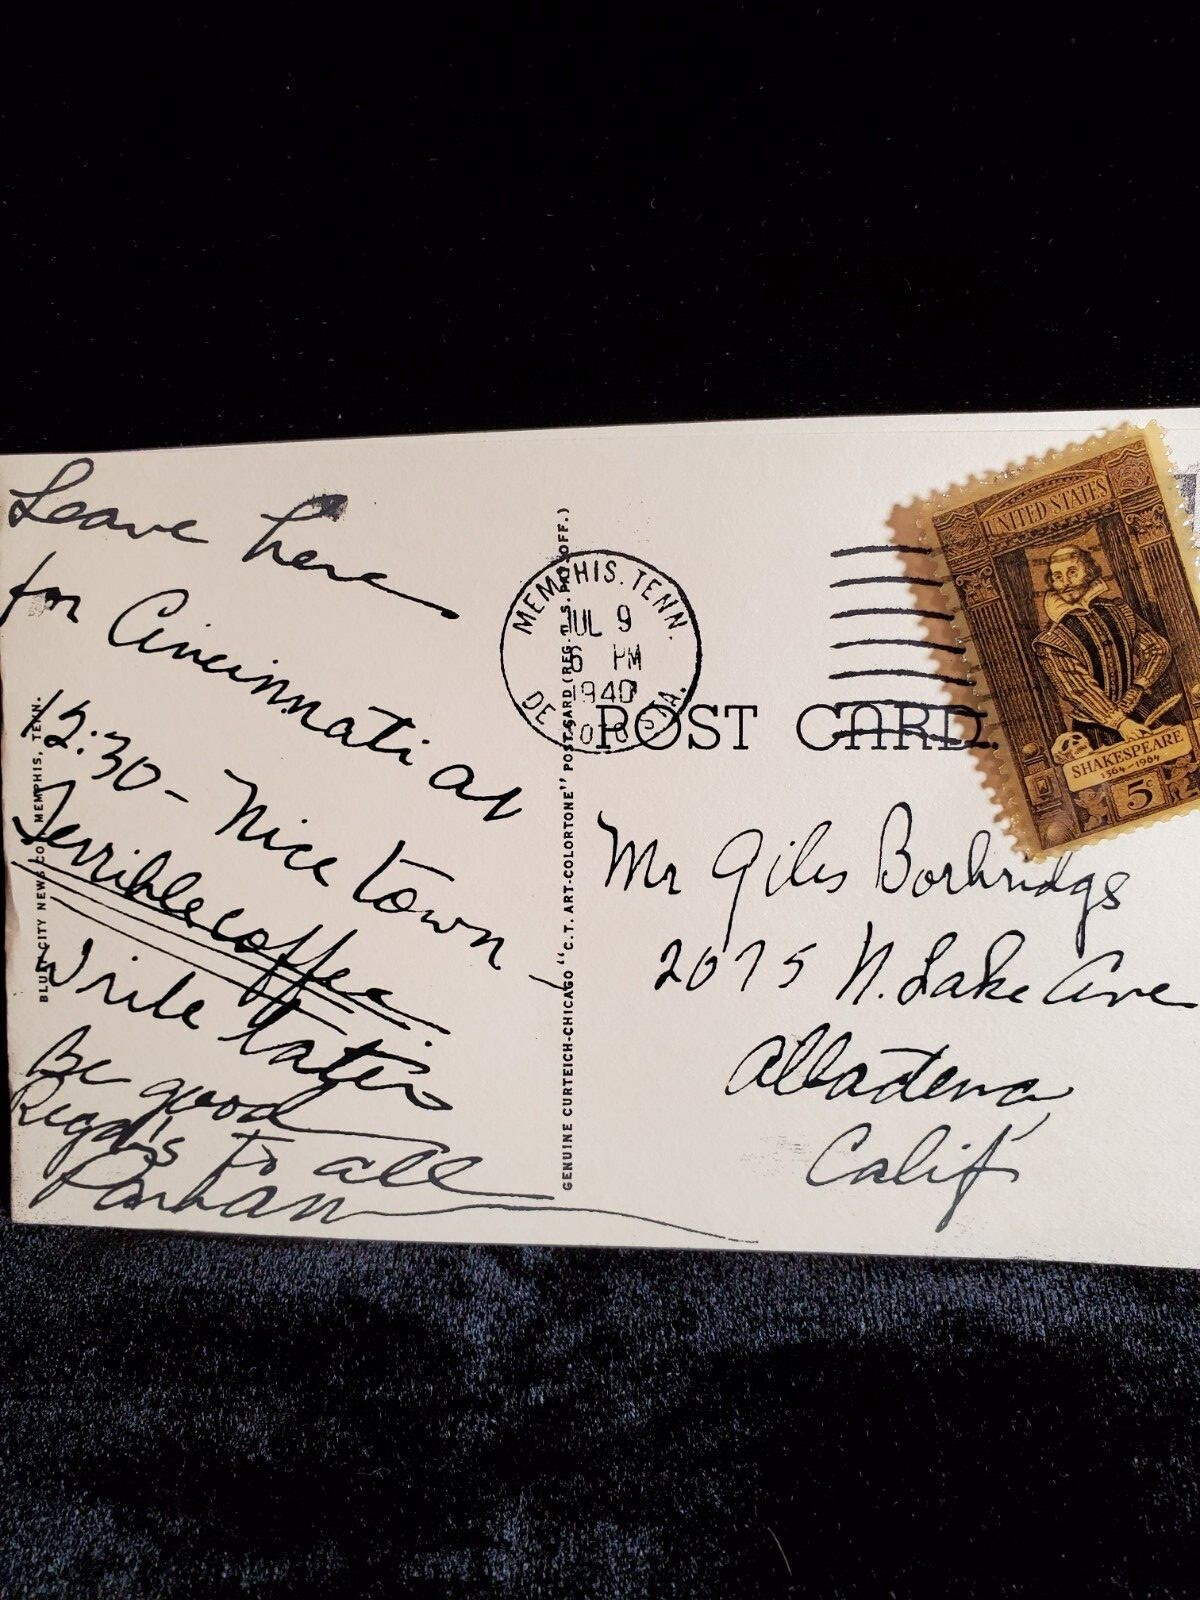 Leave here
for Cincinnati at
12:30 - Nice town -
Terrible coffee
Write later
Be good
Regards to all
BLUFF CITY NEWS CO., MEMPHIS, TENN.
GENUINE CURTEICH-CHICAGO "C.T. ART-COLORTONE" POST CARD (REG. U.S. PAT. OFF.)
MEMPHIS. TENN.
JUL 9
6 PM
1940
POST CARD.
UNITED STATES
SHAKESPEARE
1564-1964
5c
Mr Giles
2075 N. Lake Ave
Altadena
Calif